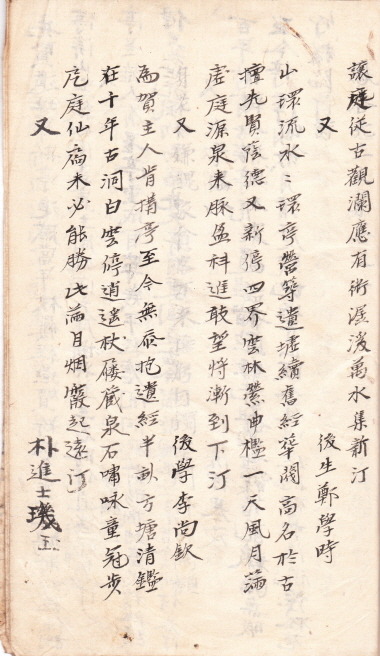 讓庭從古觀瀾應有術渥浚萬水集新汀
又 後生鄭學時
山環流水〻環亭營等遺墟續舊經華閥高名於古
擅先賢蔭德又新停四界雲林縈曲檻一天風月滿
虛庭源泉來脉盈科進敢望將漸到下汀
又 後學李尚欽
爲賀主人肯搆亭至今無忝抱遺經半畝方塘清鑑
在十年古洞白雲停逍遙杖屨藏泉石嘯咏童冠步
庭仙 未必能勝此滿目烟霞起遠汀
又 朴進士璣玉